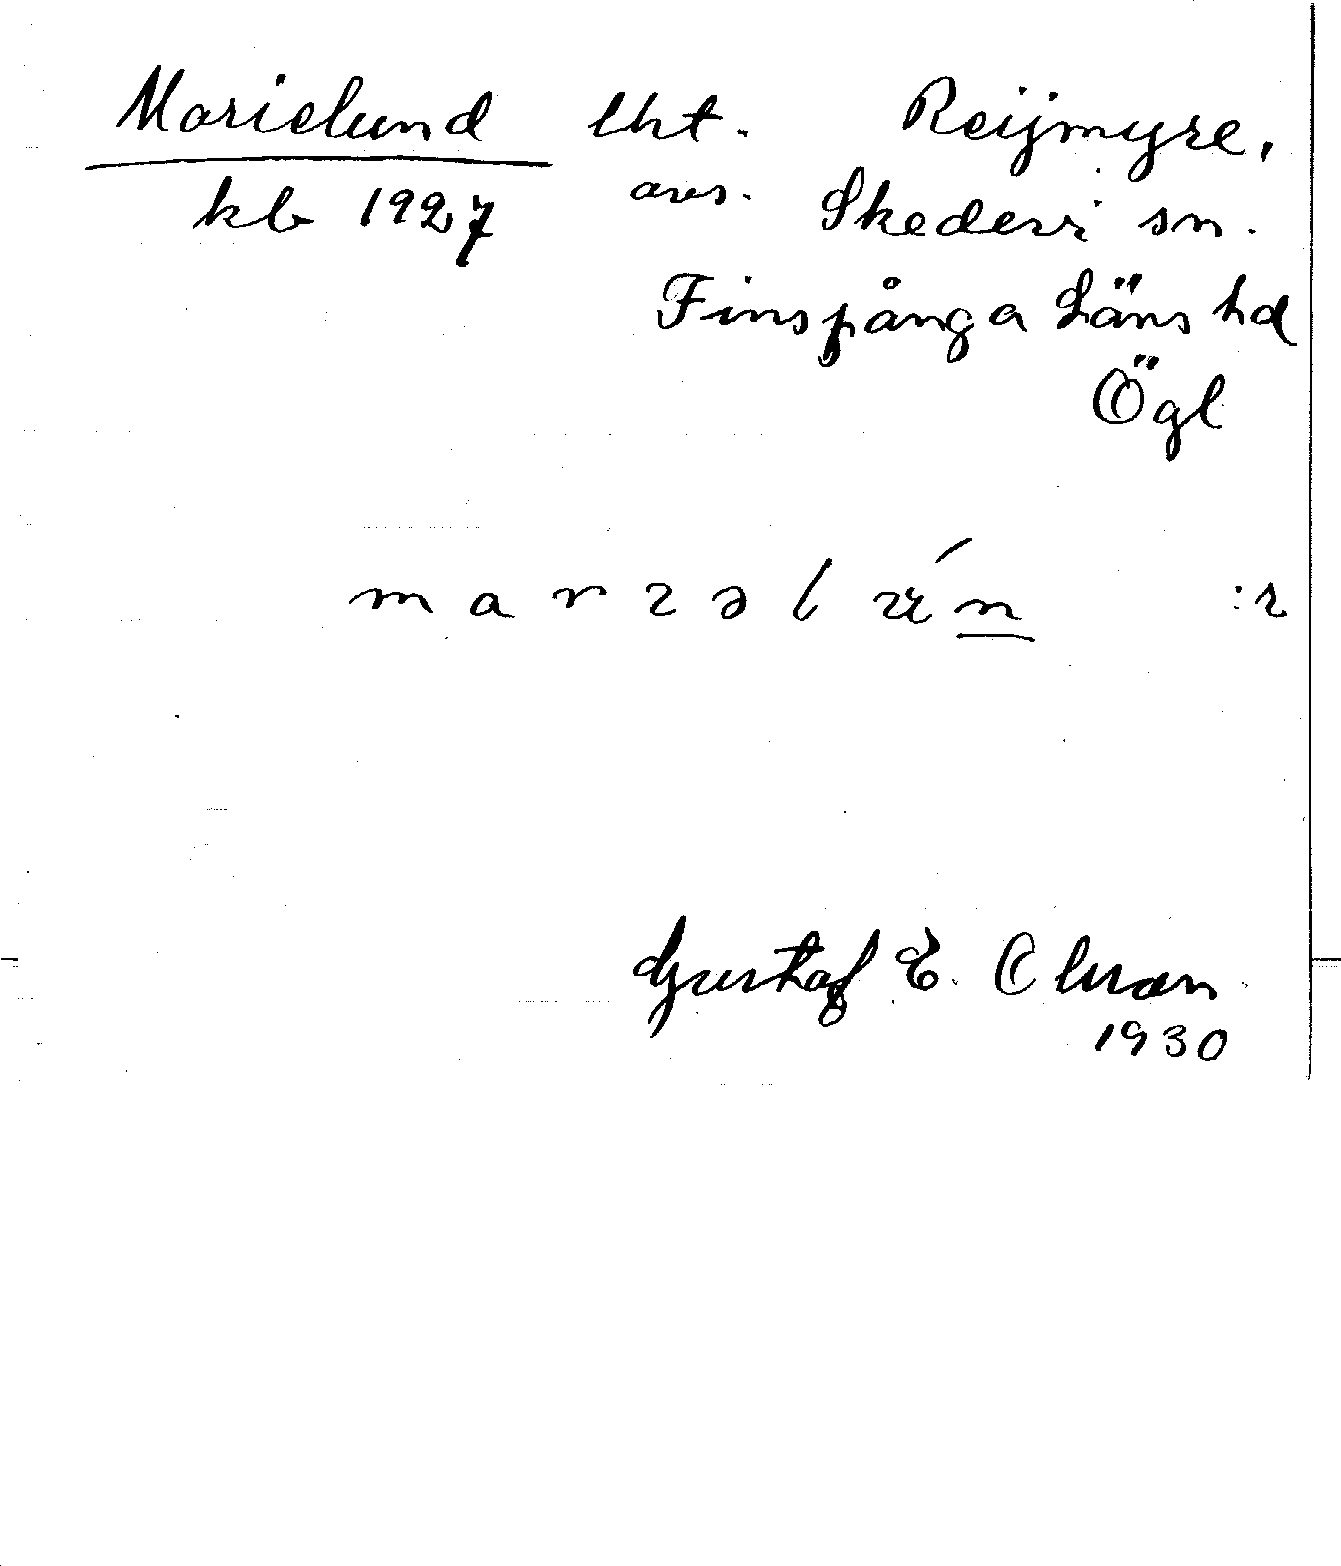 Marielund lht. Reijmyre,
kb 1927 avs. Skedevi sn.
Finspånga Läns hd
Ögl
marɪəlún :ɪ
Gustaf E. Olman
1930